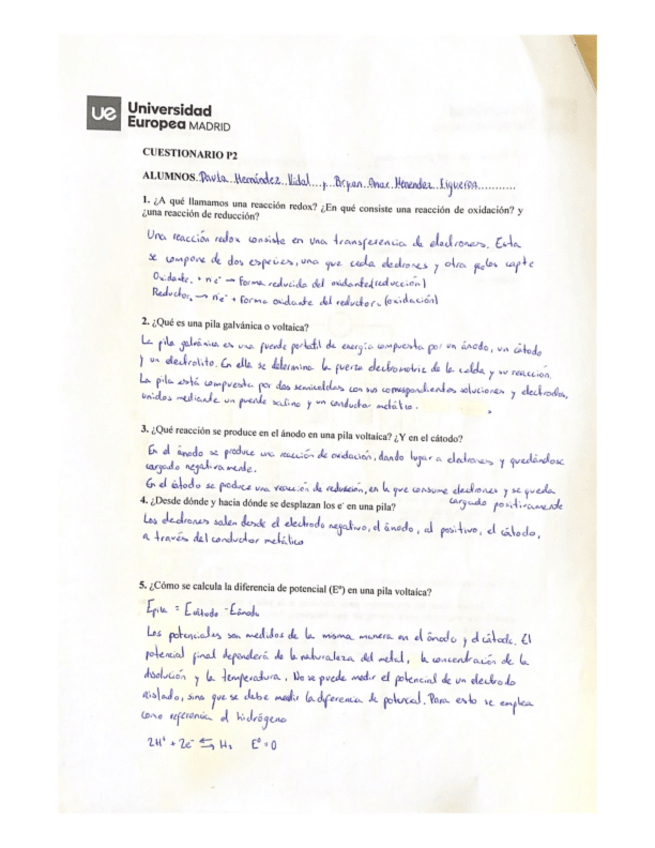 ue Universidad
Europea MADRID
CUESTIONARIO P2
ALUMNOS. Paula Hernández Vidal y Bryan Omar Menendez Figueroa
1. ¿A qué llamamos una reacción redox? ¿En qué consiste una reacción de oxidación? y
¿una reacción de reducción?
Una reacción redox consiste en una transferencia de electrones. Esta
se compone de dos especies, una que ceda electrones y otra que los capte
Oxidante. + n e⁻ → Forma reducida del oxidante (reducción)
Reductor. → n e⁻ + Forma oxidante del reductor. (oxidación)
2. ¿Qué es una pila galvánica o voltaica?
La pila galvánica es una fuente portatil de energía compuesta por un ánodo, un cátodo
y un electrolito. En ella se determina la fuerza electromotriz de la celda y su reacción.
La pila está compuesta por dos semiceldas con sus correspondientes soluciones y electrodos,
unidos mediante un puente salino y un conductor metálico.
3. ¿Qué reacción se produce en el ánodo en una pila voltaica? ¿Y en el cátodo?
En el ánodo se produce una reacción de oxidación, dando lugar a electrones y quedándose
cargado negativamente.
En el cátodo se produce una reacción de reducción, en la que consume electrones y se queda
cargado positivamente
4. ¿Desde dónde y hacia dónde se desplazan los e⁻ en una pila?
Los electrones salen desde el electrodo negativo, el ánodo, al positivo, el cátodo,
a través del conductor metálico
5. ¿Cómo se calcula la diferencia de potencial (Eº) en una pila voltaica?
Epila = Ecátodo - Eánodo
Los potenciales son medidos de la misma manera en el ánodo y el cátodo. El
potencial final dependerá de la naturaleza del metal, la concentración de la
disolución y la temperatura. No se puede medir el potencial de un electrodo
aislado, sino que se debe medir la diferencia de potencial. Para esto se emplea
como referencia el hidrógeno
2H⁺ + 2e⁻ ⇆ H₂ Eº = 0